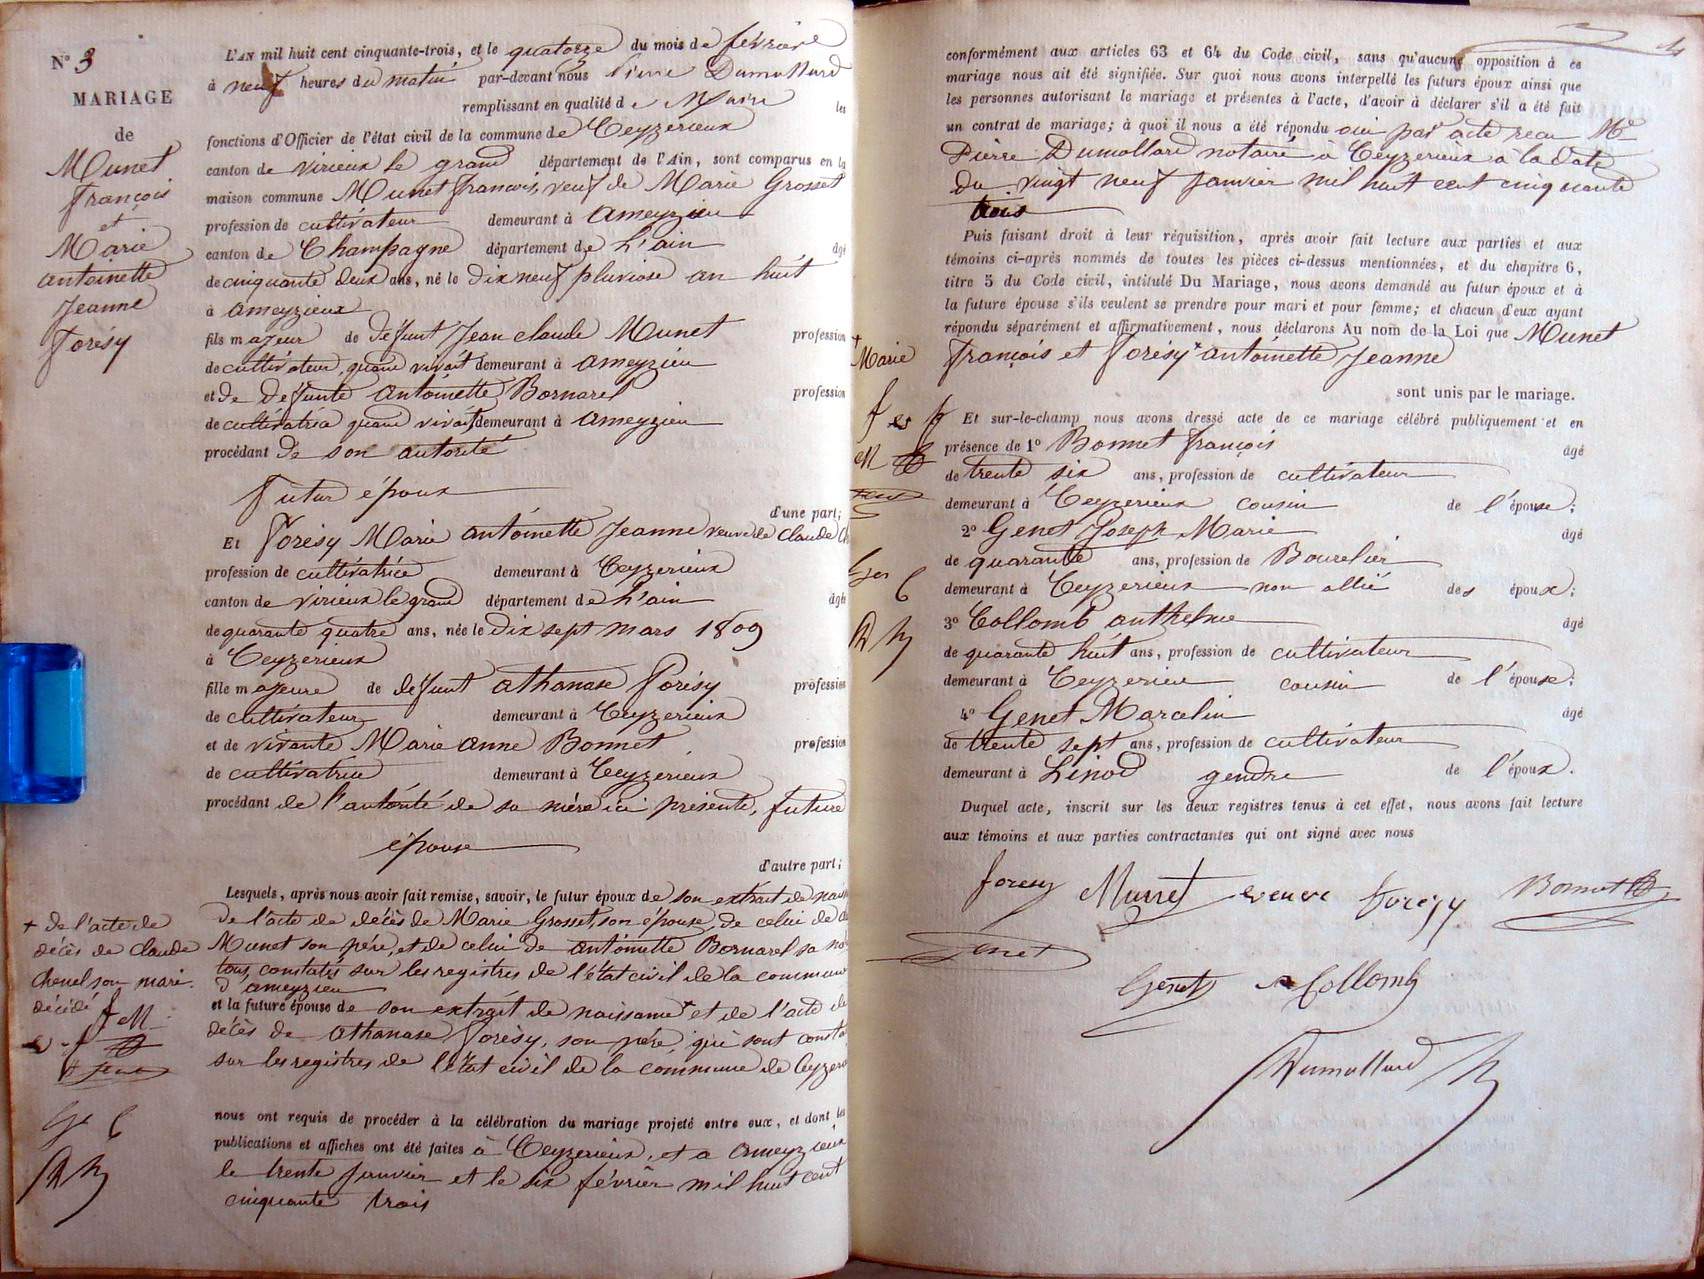 N° 3
MARIAGE
de
Munet
François
et
Marie
antoinette
Jeanne
Forésy
L'AN mil huit cent cinquante-trois, et le quatorze du mois de février
à neuf heures du matin par-devant nous Pierre Dumollard
remplissant en qualité de Maire les
fonctions d'Officier de l'état civil de la commune de Ceyzerieux
canton de virieux le grand département de l'Ain, sont comparus en la
maison commune Munet François, veuf de Marie Grosset
profession de cultivateur demeurant à ameyzieu
canton de Champagne département de L'ain âgé
de cinquante deux ans, né le dix neuf pluviose an huit
à ameyzieux
fils majeur de défunt Jean claude Munet profession
de cultivateur, quand vivait demeurant à ameyzieu
et de défunte antoinette Bornarel profession
de cultivatrice quand vivait demeurant à ameyzieu
procédant de son autorité
futur époux
d'une part;
Et Forésy Marie antoinette Jeanne veuve de Claude
profession de cultivatrice demeurant à Ceyzerieux
canton de virieux le grand département de L'ain âgée
de quarante quatre ans, née le dix sept mars 1809
à Ceyzerieux
fille majeure de défunt athanase Forésy profession
de cultivateur demeurant à Ceyzerieux
et de vivante Marie anne Bonnet profession
de cultivatrice demeurant à Ceyzerieux
procédant de l'autorité de sa mère ici présente, future
épouse
d'autre part;
Lesquels, après nous avoir fait remise, savoir, le futur époux de son extrait de
de l'acte de décès de Marie Grosset, son épouse, de celui de
Munet son père, et de celui de antoinette Bornarel sa
tous constatés sur les registres de l'état civil de la commune
d'ameyzieu
et la future épouse de son extrait de naissance + et de l'acte de
décès de athanase Forésy, son père, qui sont
sur les registres de l'état civil de la commune de
+ de l'acte de
décès de Claude
Chenel son mari
décédé
f M
nous ont requis de procéder à la célébration du mariage projeté entre eux, et dont les
publications et affiches ont été faites à Ceyzerieux, et a ameyzieux
le trente janvier et le six février mil huit cent
cinquante trois
conformément aux articles 63 et 64 du Code civil, sans qu'aucune opposition à ce
mariage nous ait été signifiée. Sur quoi nous avons interpellé les futurs époux ainsi que
les personnes autorisant le mariage et présentes à l'acte, d'avoir à déclarer s'il a été fait
un contrat de mariage; à quoi il nous a été répondu oui par acte recu Me
Pierre Dumollard notaire à Ceyzerieux à la date
du vingt neuf janvier mil huit cent cinquante
trois
Puis faisant droit à leur réquisition, après avoir fait lecture aux parties et aux
témoins ci-après nommés de toutes les pièces ci-dessus mentionnées, et du chapitre 6,
titre 5 du Code civil, intitulé Du Mariage, nous avons demandé au futur époux et à
la future épouse s'ils veulent se prendre pour mari et pour femme; et chacun d'eux ayant
répondu séparément et affirmativement, nous déclarons Au nom de la Loi que Munet
François et Forésy + antoinette Jeanne
+ Marie
sont unis par le mariage.
Et sur-le-champ nous avons dressé acte de ce mariage célébré publiquement et en
présence de 1° Bonnet François âgé
de trente six ans, profession de cultivateur
demeurant à Ceyzerieux cousin de l'épouse;
2° Genet Joseph Marie âgé
de quarante ans, profession de Bourelier
demeurant à Ceyzerieux non allié des époux;
3° Collomb anthelme âgé
de quarante huit ans, profession de cultivateur
demeurant à Ceyzerieu cousin de l'épouse;
4° Genet Marcelin âgé
de trente sept ans, profession de cultivateur
demeurant à Linod gendre de l'époux.
Duquel acte, inscrit sur les deux registres tenus à cet effet, nous avons fait lecture
aux témoins et aux parties contractantes qui ont signé avec nous
foresy Munet veuve foresy Bonnet
Genet
Genet Collomb
Dumollard